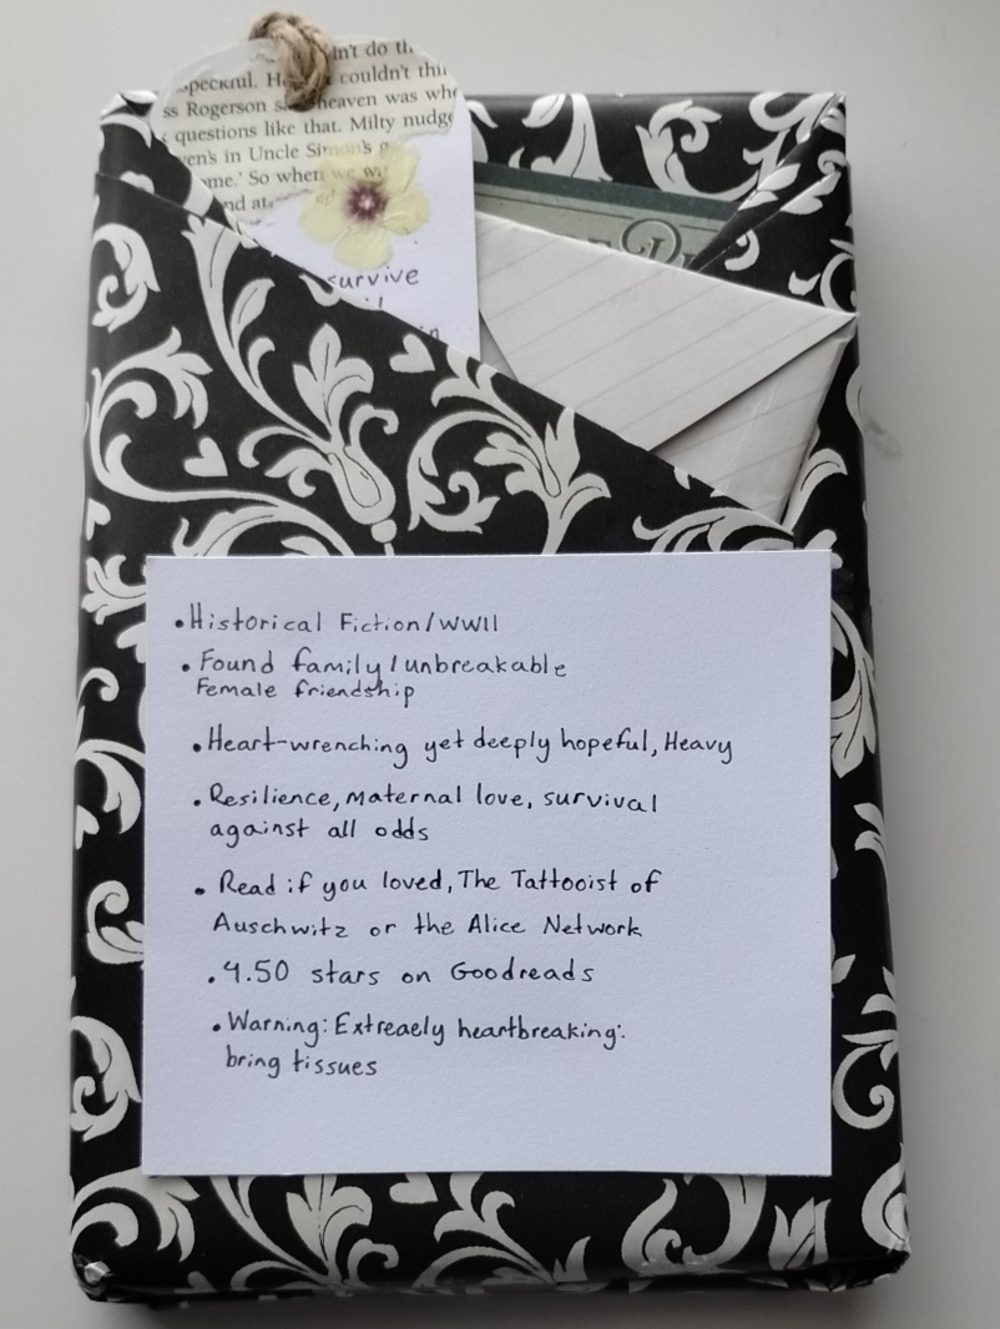 n't do th
spectful. H couldn't thi
ss Rogerson s heaven was whe
questions like that. Milty nudge
en's in Uncle Simon's g
me.' So when we w
nd at
survive
• Historical Fiction/WWII
• Found family/unbreakable
Female friendship
• Heart-wrenching yet deeply hopeful, Heavy
• Resilience, maternal love, survival
against all odds
• Read if you loved, The Tattooist of
Auschwitz or the Alice Network
• 4.50 stars on Goodreads
• Warning: Extreaely heartbreaking:
bring tissues